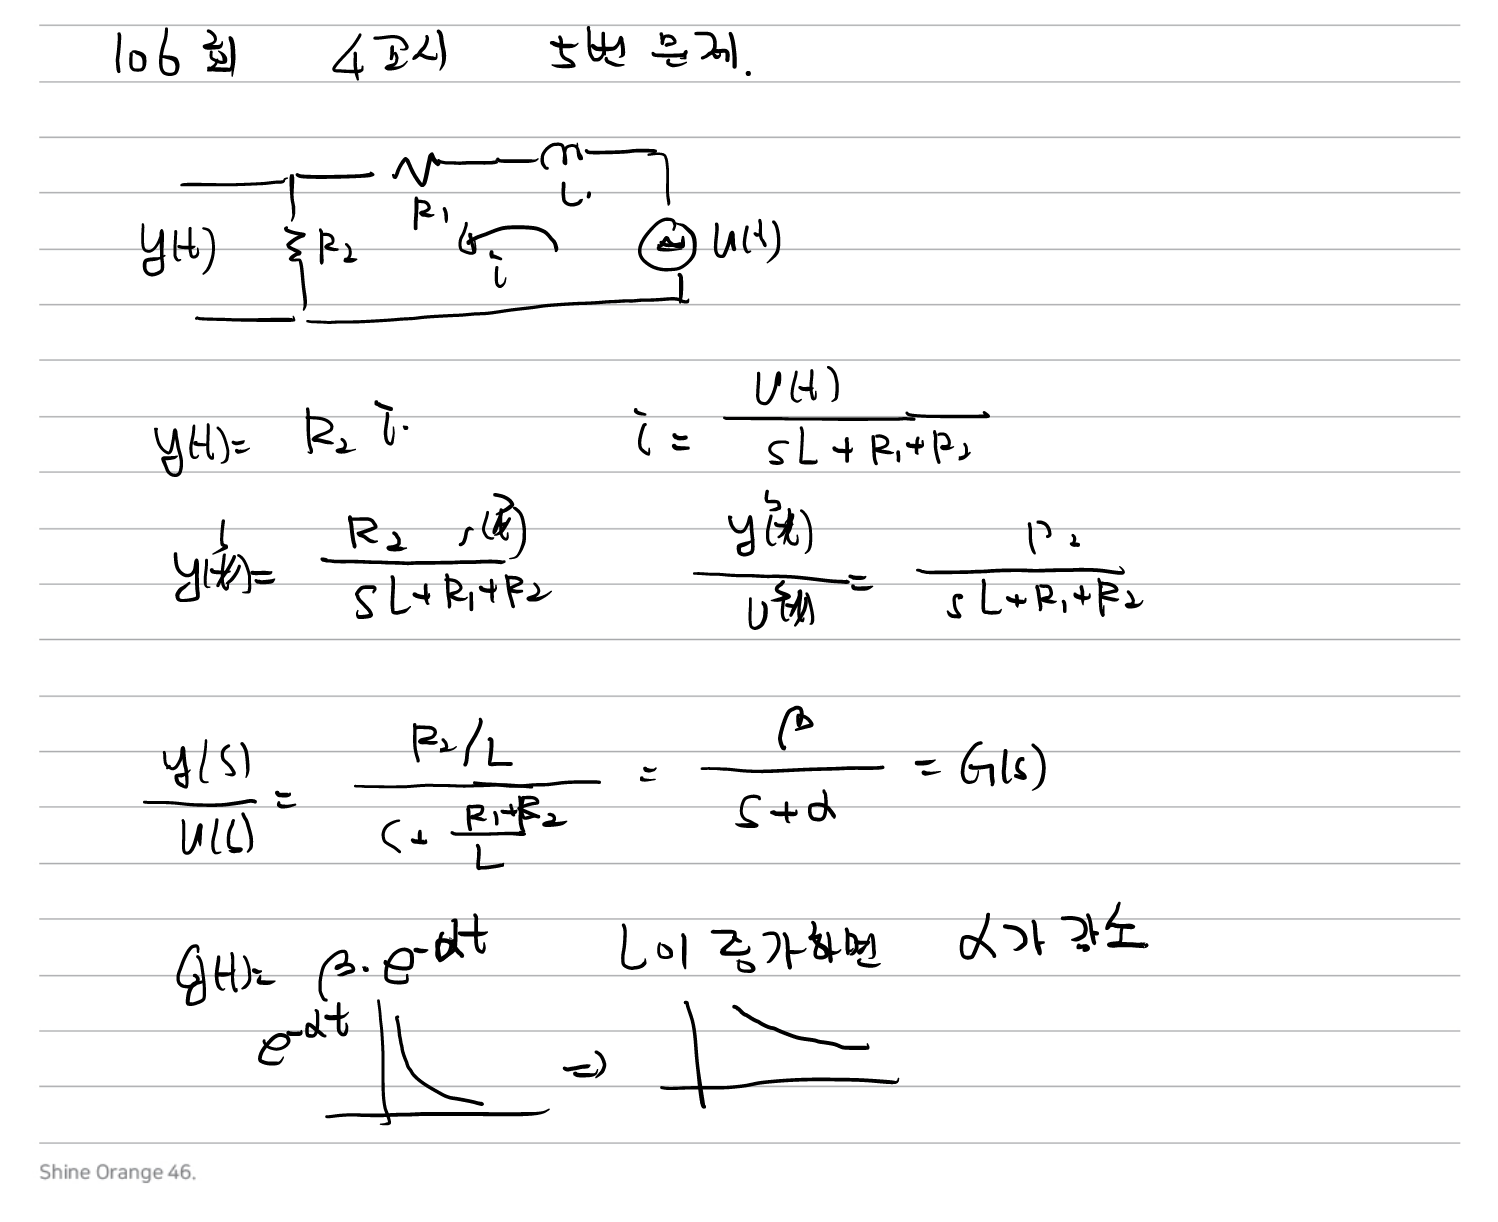 106회 4교시 5번 문제.
R₁ L.
y(t) R₂ i u(t)
y(t)= R₂ i. i = U(t) / (sL + R₁+R₂)
y(s)= R₂ / (sL+R₁+R₂) y(s)/U(s) = R₂ / (sL+R₁+R₂)
y(s)/U(s) = (R₂/L) / (s+ (R₁+R₂)/L) = β / (s+α) = G(s)
g(t)= β·e^(-αt) L이 증가하면 α가 감소
e^(-αt) ⇒
Shine Orange 46.